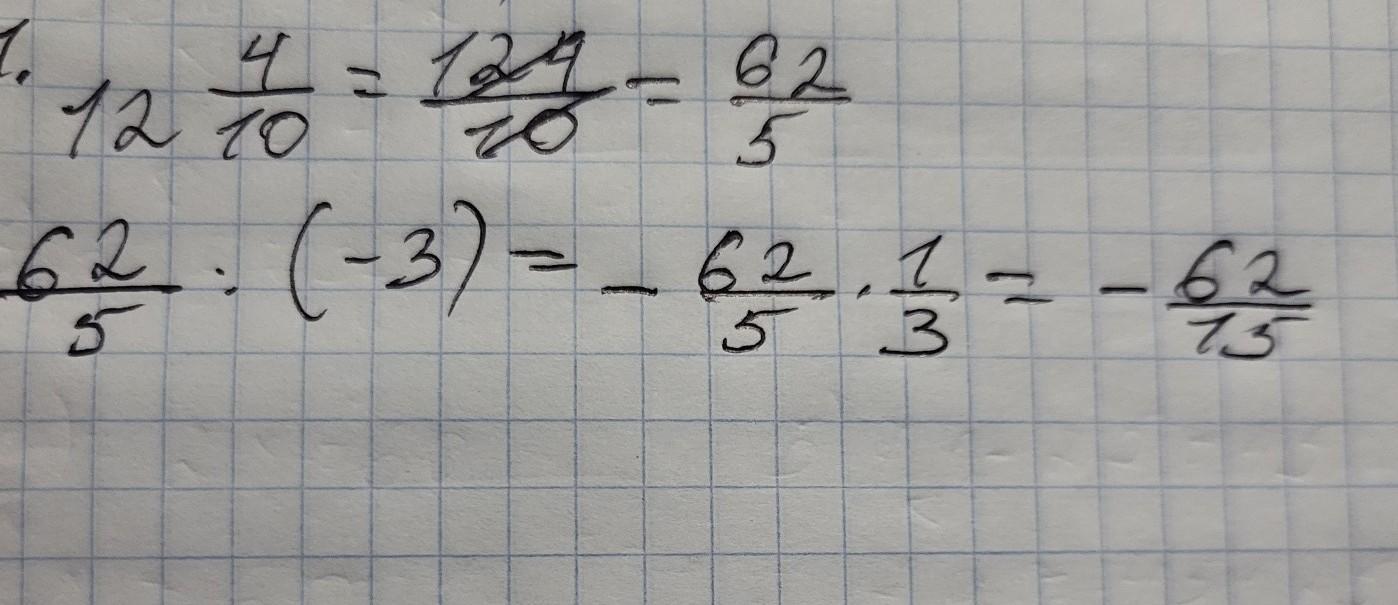 1. 12 4/10 = 124/10 = 62/5
62/5 : (-3) = - 62/5 · 1/3 = - 62/15